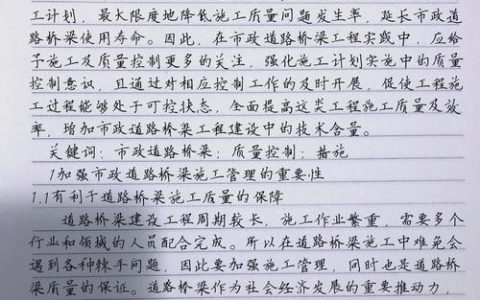 工计划，最大限度地降低施工质量问题发生率，延长市政道
路桥梁使用寿命。因此，在市政道路桥梁工程实践中，应给
予施工及质量控制更多的关注，强化施工计划实施中的质量
控制意识，且通过对相应控制工作的及时开展，促使工程施
工过程能够处于可控状态，全面提高这类工程施工质量及效
率，增加市政道路桥梁工程建设中的技术含量。
关键词：市政道路桥梁；质量控制；措施
1加强市政道路桥梁施工管理的重要性
1.1有利于道路桥梁施工质量的保障
道路桥梁建设工程周期较长，施工作业繁重，需要多个
行业和领域的人员配合完成。所以在道路桥梁施工中难免会
遇到各种棘手问题，因此要加强施工管理，同时也是道路桥
梁质量的保证。道路桥梁作为社会经济发展的重要推动力，